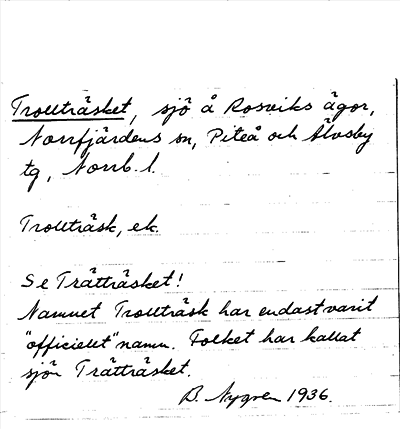 Trollträsket, sjö å Rosviks ägor,
Norrfjärdens sn, Piteå och Älvsby
tg, Norrb. l.
Trollträsk, ek.
Se Trätträsket!
Namnet Trollträsk har endast varit
"officiellt" namn. Folket har kallat
sjön Trätträsket.
B. Nygren 1936.